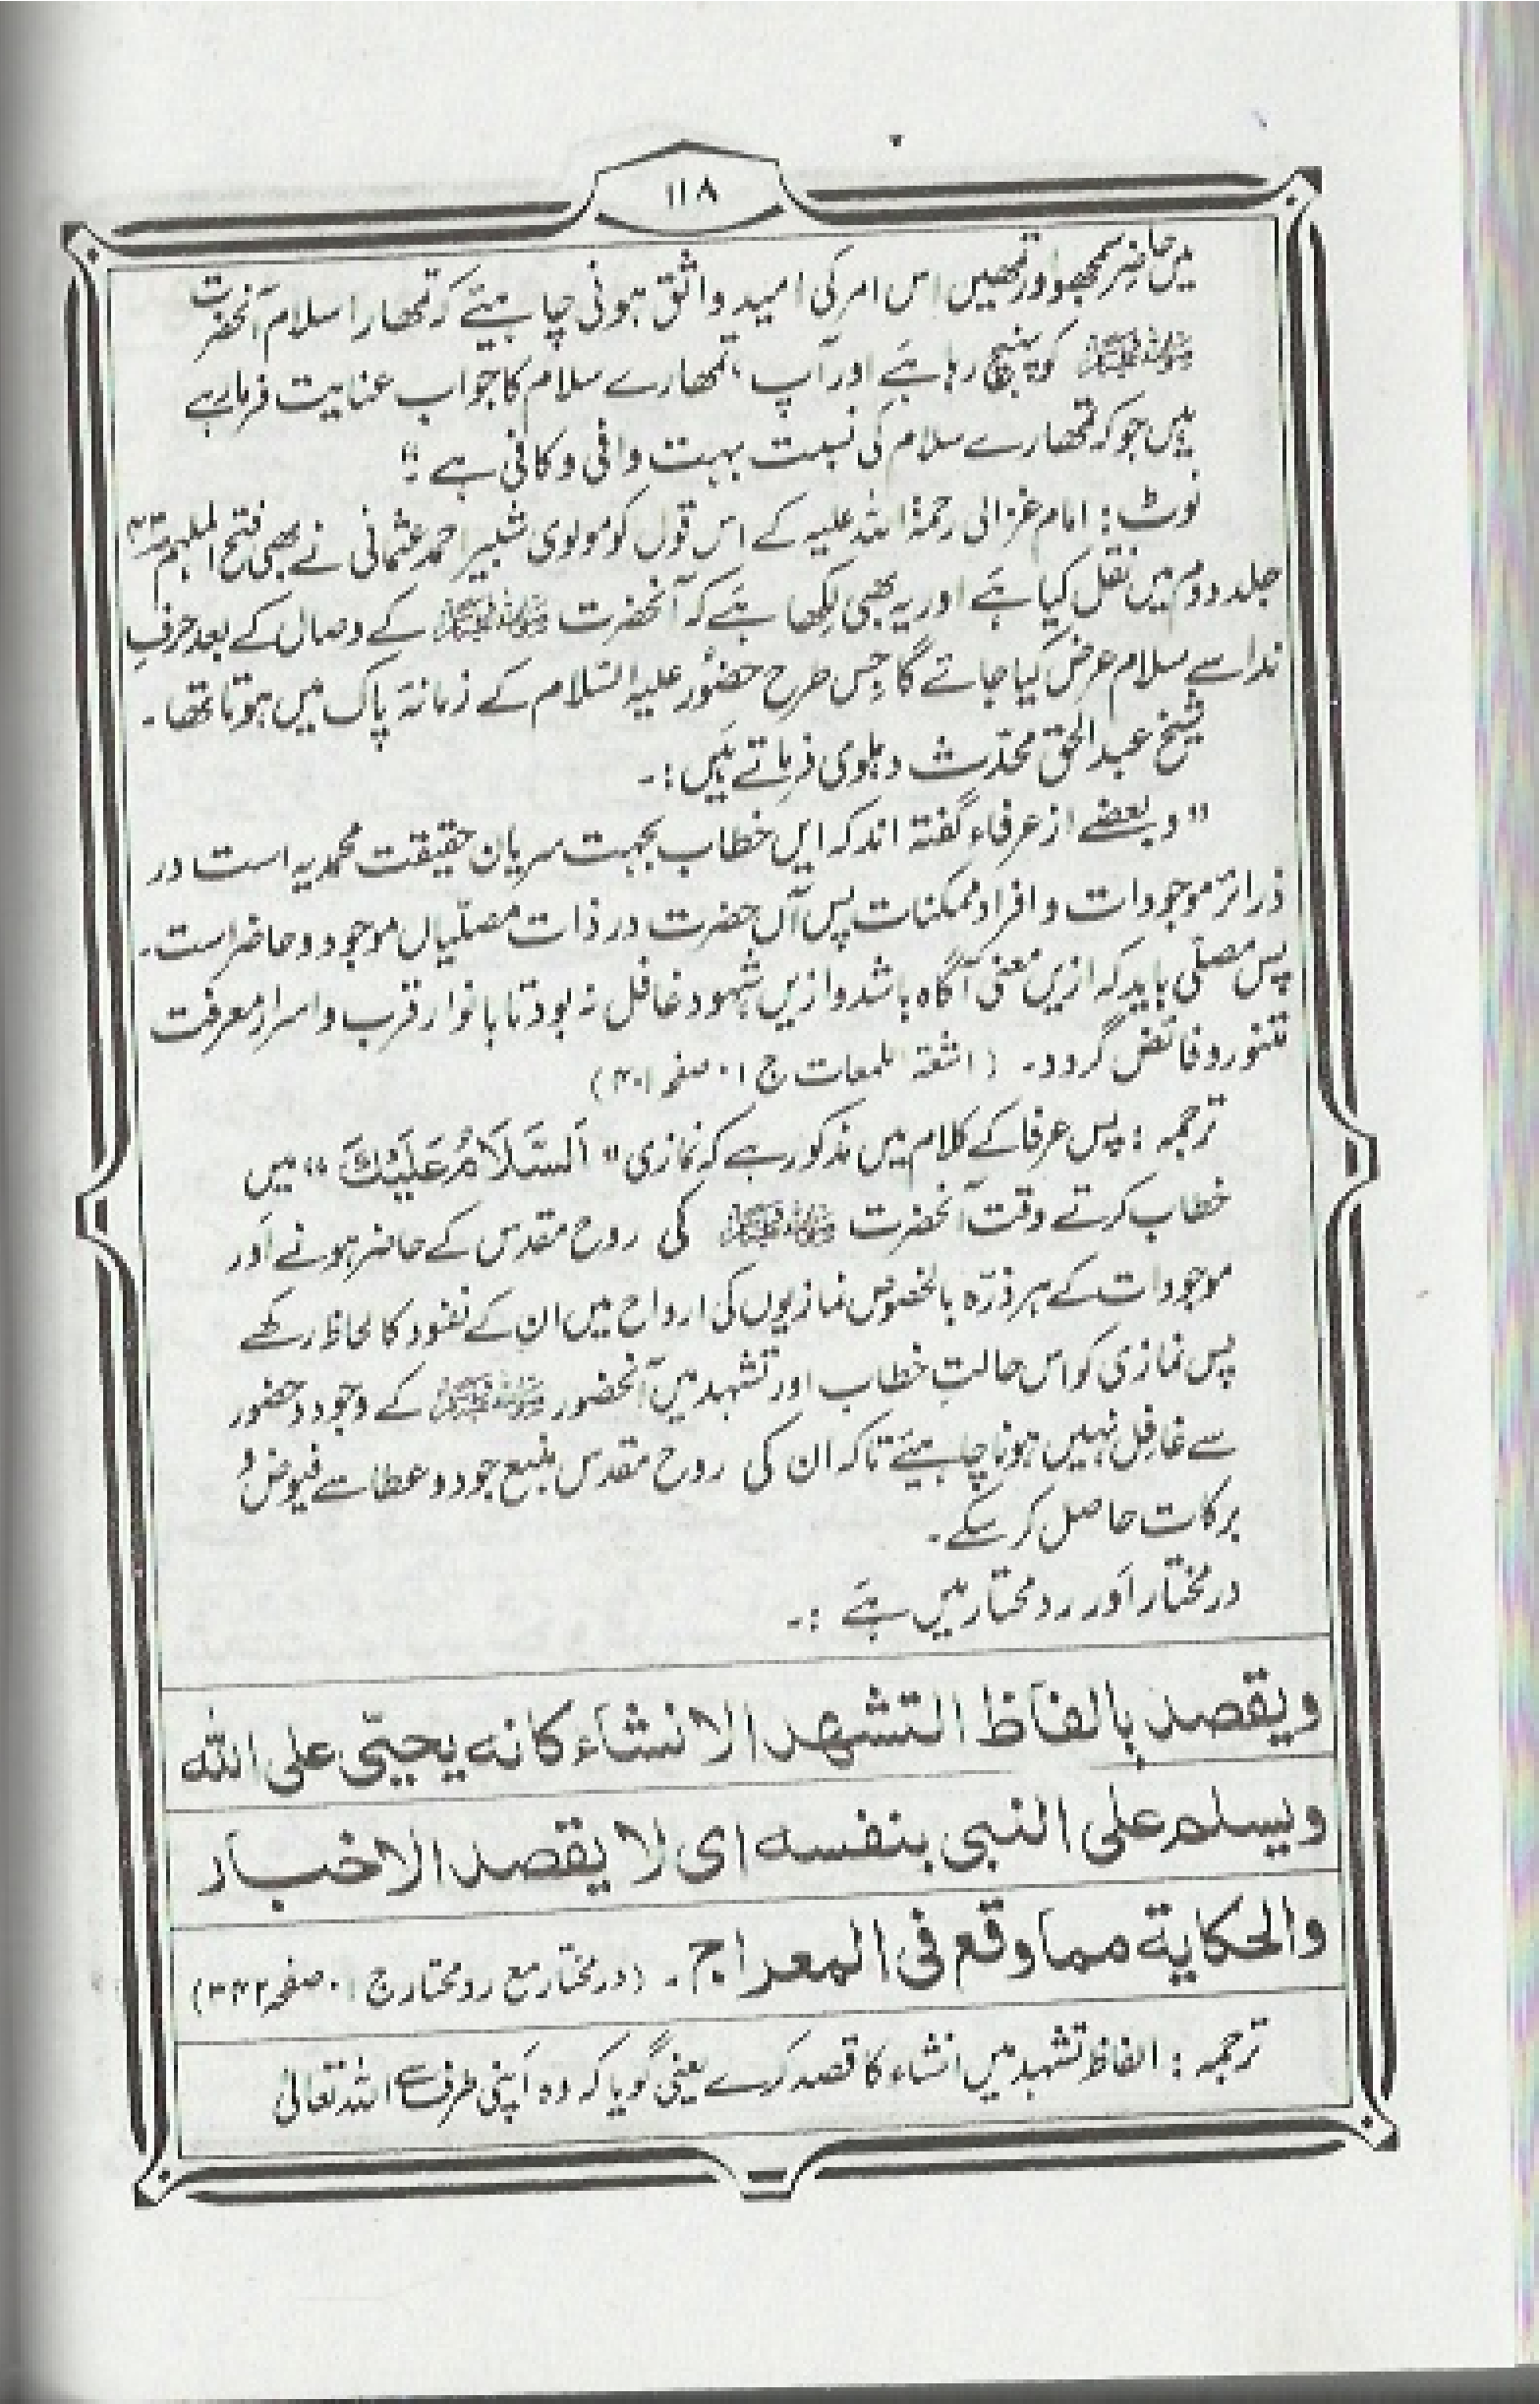 ۱۱۸
میں حاضر سمجھو اور تمھیں اس امر کی امید واثق ہونی چاہیئے کہ تمھارا سلام آنحضرت
ﷺ کو پہنچ رہا ہے اور آپ تمھارے سلام کا جواب عنایت فرما رہے
ہیں جو کہ تمھارے سلام کی نسبت بہت وافی و کافی ہے۔“
نوٹ: امام غزالی رحمۃ اللہ علیہ کے اس قول کو مولوی شبیر احمد عثمانی نے بھی فتح الملہم
جلد دوم میں نقل کیا ہے اور یہ بھی لکھا ہے کہ آنحضرت ﷺ کے وصال کے بعد حرفِ
ندا سے سلام عرض کیا جائے گا جس طرح حضور علیہ السلام کے زمانہ پاک میں ہوتا تھا۔
شیخ عبدالحق محدّث دہلوی فرماتے ہیں:۔
”و بعضے از عرفاء گفتہ اند کہ ایں خطاب بجہت سریان حقیقت محمدیہ است در
ذرائر موجودات و افراد ممکنات پس آں حضرت در ذات مصلیاں موجود و حاضر است۔
پس مصلّی باید کہ ازیں معنی آگاہ باشد و ازیں شہود غافل نہ بود تا بانوار قرب و اسرار معرفت
متنور و فائض گردد۔ (اشعۃ اللمعات ج ۱۰ صفحہ ۴۰۱)
ترجمہ: پس عرفا کے کلام میں مذکور ہے کہ نمازی ”اَلسَّلَامُ عَلَیْكَ“ میں
خطاب کرتے وقت آنحضرت ﷺ کی روح مقدس کے حاضر ہونے اور
موجودات کے ہر ذرّہ بالخصوص نمازیوں کی ارواح میں ان کے نفوذ کا لحاظ رکھے
پس نمازی کو اس حالتِ خطاب اور تشہد میں آنحضور ﷺ کے وجود و حضور
سے غافل نہیں ہونا چاہیئے تاکہ ان کی روح مقدس منبع جود و عطا سے فیوض و
برکات حاصل کر سکے۔
در مختار اور رد محتار میں ہے :۔
ویقصد بالفاظ التشهد الانشاء کانه یحیّی علی الله
ویسلم علی النبی بنفسه ای لا یقصد الاخبار
والحکایة مما وقع فی المعراج۔ (در مختار مع رد محتار ج ۱۰ صفحہ ۳۴۲)
ترجمہ: الفاظ تشہد میں انشاء کا قصد کرے یعنی گویا کہ وہ اپنی طرف سے اللہ تعالیٰ